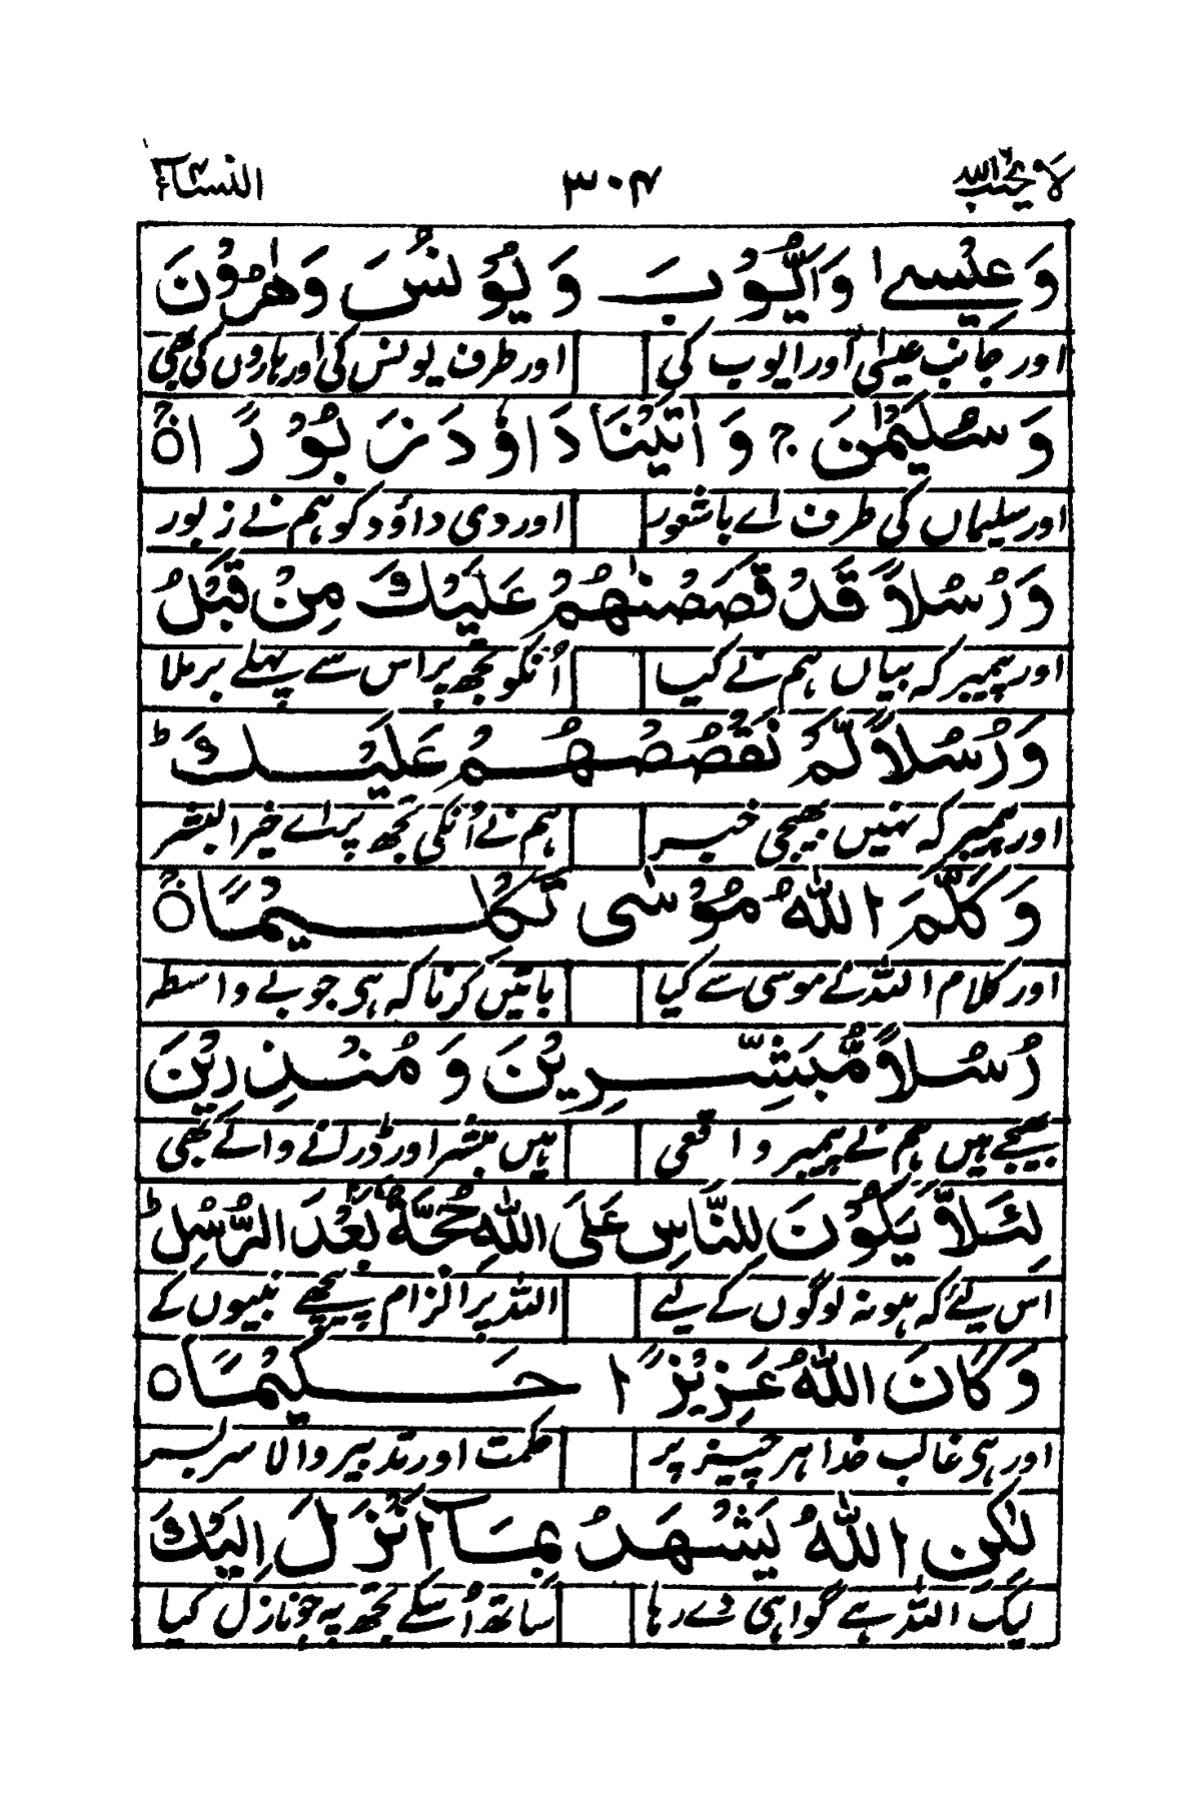 لا یحب اللہ ۳۰۴ النساء ۴
وَعِیۡسٰی وَاَیُّوۡبَ وَیُوۡنُسَ وَهٰرُوۡنَ
اور جانب عیسیٰ اور ایوب کی اور طرف یونس کی اور ہاروں کی بھی
وَسُلَیۡمٰنَ ج وَاٰتَیۡنَا دَاوٗدَ زَبُوۡرًا ۝
اور سلیماں کی طرف اے باشعور اور دی داؤد کو ہم نے زبور
وَرُسُلًا قَدۡ قَصَصۡنٰهُمۡ عَلَیۡكَ مِنۡ قَبۡلُ
اور پیمبر کہ بیاں ہم نے کیا اُنکو تجھ پر اس سے پہلے برملا
وَرُسُلًا لَّمۡ نَقۡصُصۡهُمۡ عَلَیۡكَ ط
اور پیمبر کہ نہیں بھیجی خبر ہم نے اُنکی تجھ پر اے خیر البشر
وَكَلَّمَ اللّٰهُ مُوۡسٰی تَكۡلِیۡمًا ۝
اور کلام اللہ نے موسی سے کیا باتیں کرنا کہ ہی جو بے واسطہ
رُسُلًا مُّبَشِّرِیۡنَ وَمُنۡذِرِیۡنَ
بھیجے ہیں ہم نے پیمبر واقعی ہیں مبشر اور ڈرانے والے بھی
لِئَلَّا یَكُوۡنَ لِلنَّاسِ عَلَی اللّٰهِ حُجَّةٌۢ بَعۡدَ الرُّسُلِ ط
اس لیے کہ ہو نہ لوگوں کے لیے اللہ پر الزام پیچھے نبیوں کے
وَكَانَ اللّٰهُ عَزِیۡزًا حَكِیۡمًا ۝
اور ہی غالب خدا ہر چیز پر حکمت اور تدبیر والا سربسر
لٰكِنِ اللّٰهُ یَشۡهَدُ بِمَاۤ اَنۡزَلَ اِلَیۡكَ
لیک اللہ ہے گواہی دے رہا ساتھ اُسکے تجھ پہ جو نازل کیا